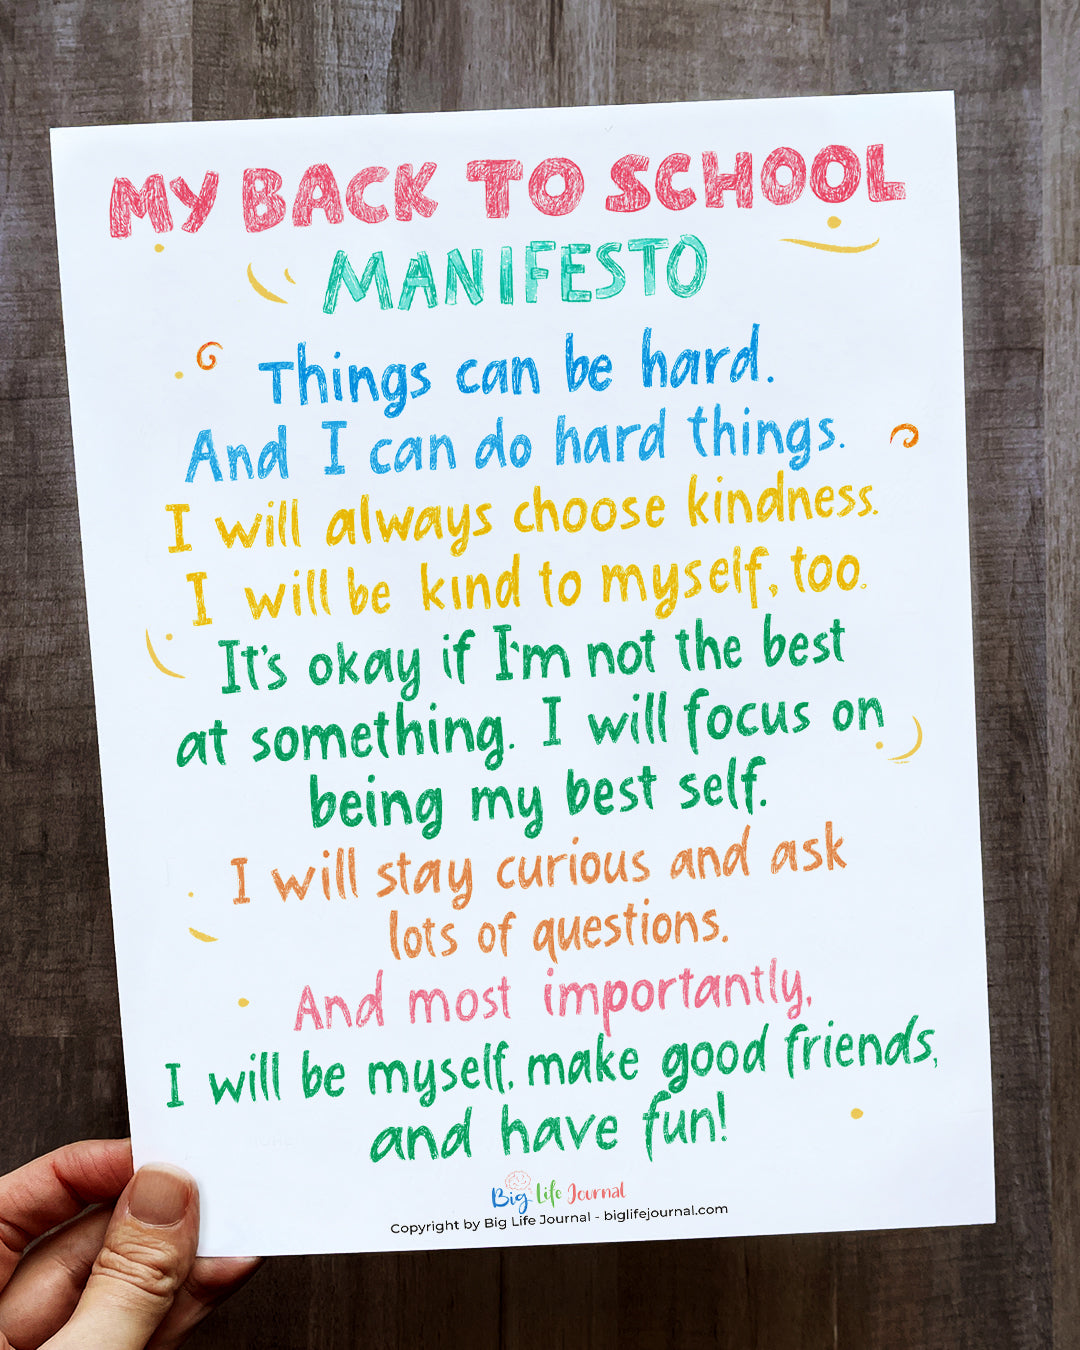 MY BACK TO SCHOOL
MANIFESTO
Things can be hard.
And I can do hard things.
I will always choose kindness.
I will be kind to myself, too.
It's okay if I'm not the best
at something. I will focus on
being my best self.
I will stay curious and ask
lots of questions.
And most importantly,
I will be myself, make good friends,
and have fun!
Big Life Journal
Copyright by Big Life Journal - biglifejournal.com